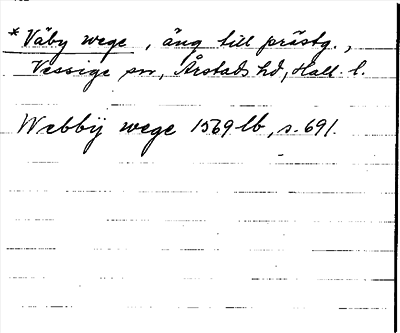 * Väby wege, äng till prästg.,
Vessige sn, Årstads hd, Hall. l.
Wæbbÿ wege 1569 lb, s. 691.